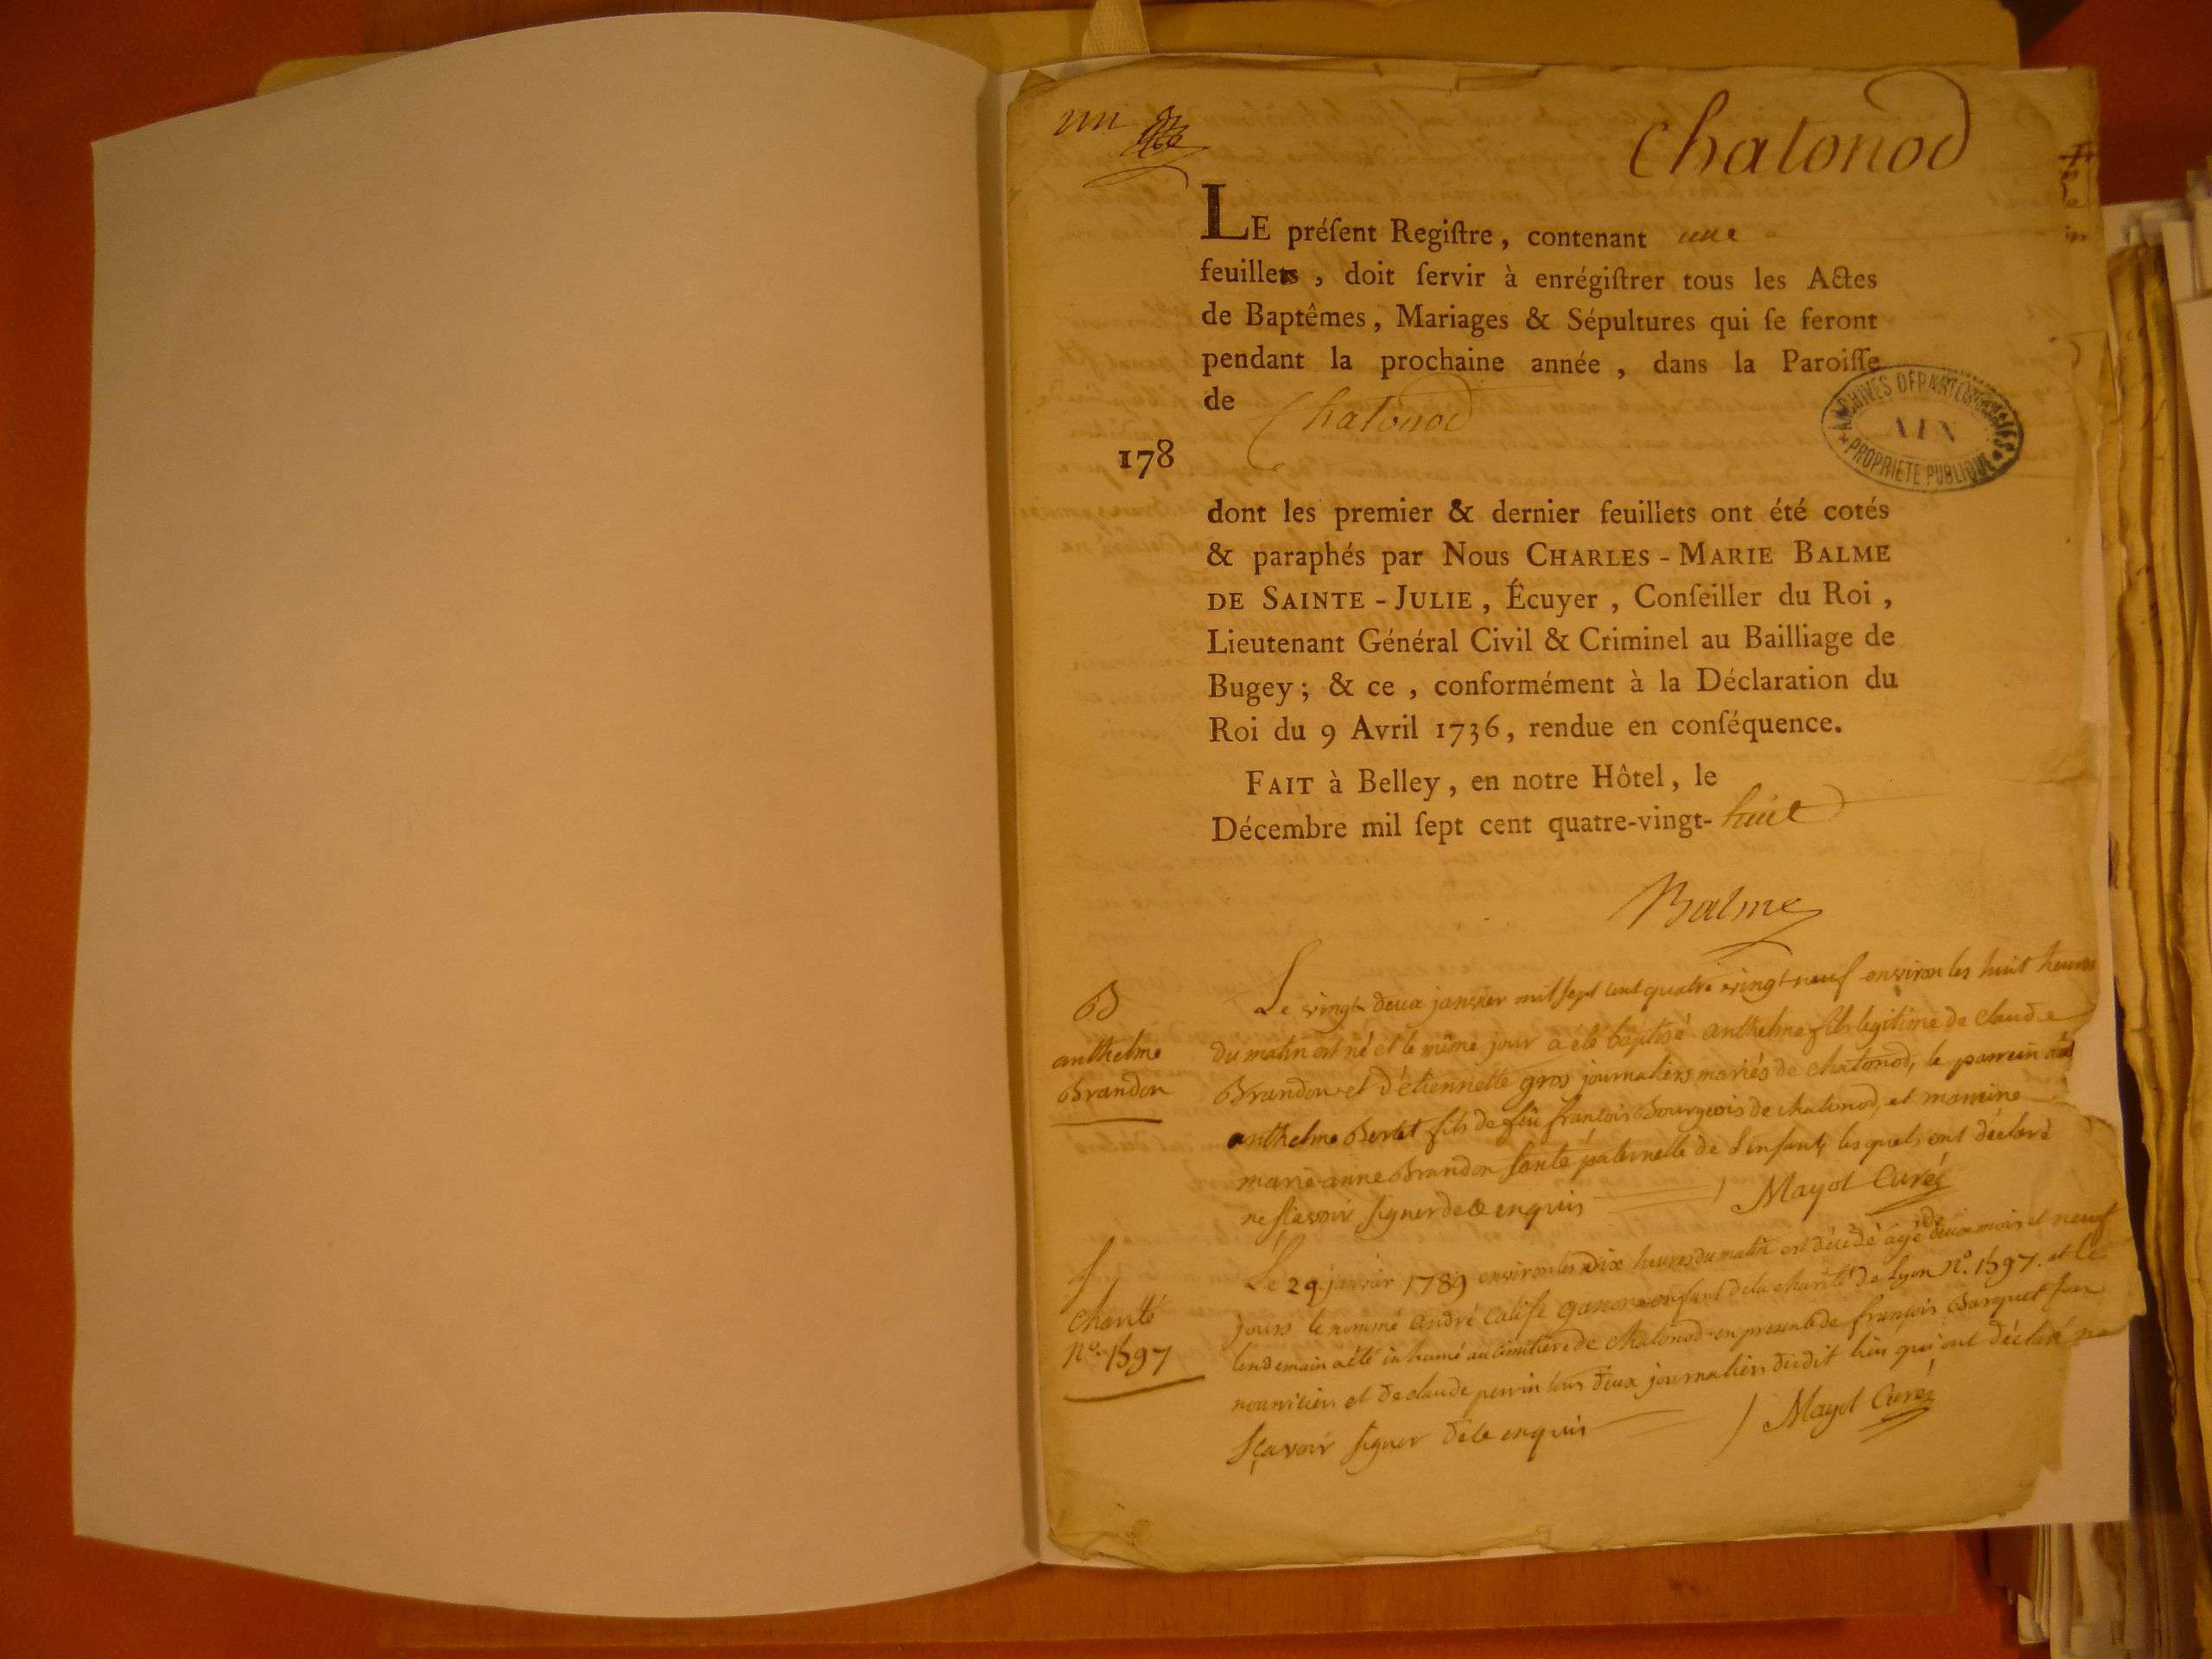 un
Chatonod
LE préſent Regiſtre, contenant une
feuillets, doit ſervir à enrégiſtrer tous les Actes
de Baptêmes, Mariages & Sépultures qui ſe feront
pendant la prochaine année, dans la Paroiſſe
de Chatonod
ARCHIVES DÉPARTEMENTALES
AIN
PROPRIÉTÉ PUBLIQUE
178
dont les premier & dernier feuillets ont été cotés
& paraphés par Nous CHARLES-MARIE BALME
DE SAINTE-JULIE, Écuyer, Conſeiller du Roi,
Lieutenant Général Civil & Criminel au Bailliage de
Bugey; & ce, conformément à la Déclaration du
Roi du 9 Avril 1736, rendue en conſéquence.
FAIT à Belley, en notre Hôtel, le
Décembre mil ſept cent quatre-vingt-huit
Balme
B
anthelme
Brandon
Le vingt deux janvier mil sept cent quatre vingt neuf environ les huit heures
du matin est né et le même jour a été baptisé anthelme fils legitime de claude
Brandon et d'etiennette gros journaliers mariés de chatonod, le parrein
anthelme Bertet fils de feu françois Bourgeois de chatonod, et marreine
marie-anne Brandon tante paternelle de l'enfant, lesquels ont déclaré
ne sçavoir signer de ce enquis Mayot Curé
S
charité
n°. 1597
Le 29 janvier 1789 environ les dix heures du matin est décédé agé de deux mois et neuf
jours le nommé andré calife garçon enfant de la charité de Lyon n°. 1597. et le
lendemain a été inhumé au cimitiere de chatonod en presence de françois Barquet son
nourricier et de claude perrin tous deux journaliers dudit lieu qui ont déclaré ne
sçavoir signer de ce enquis Mayot Curé